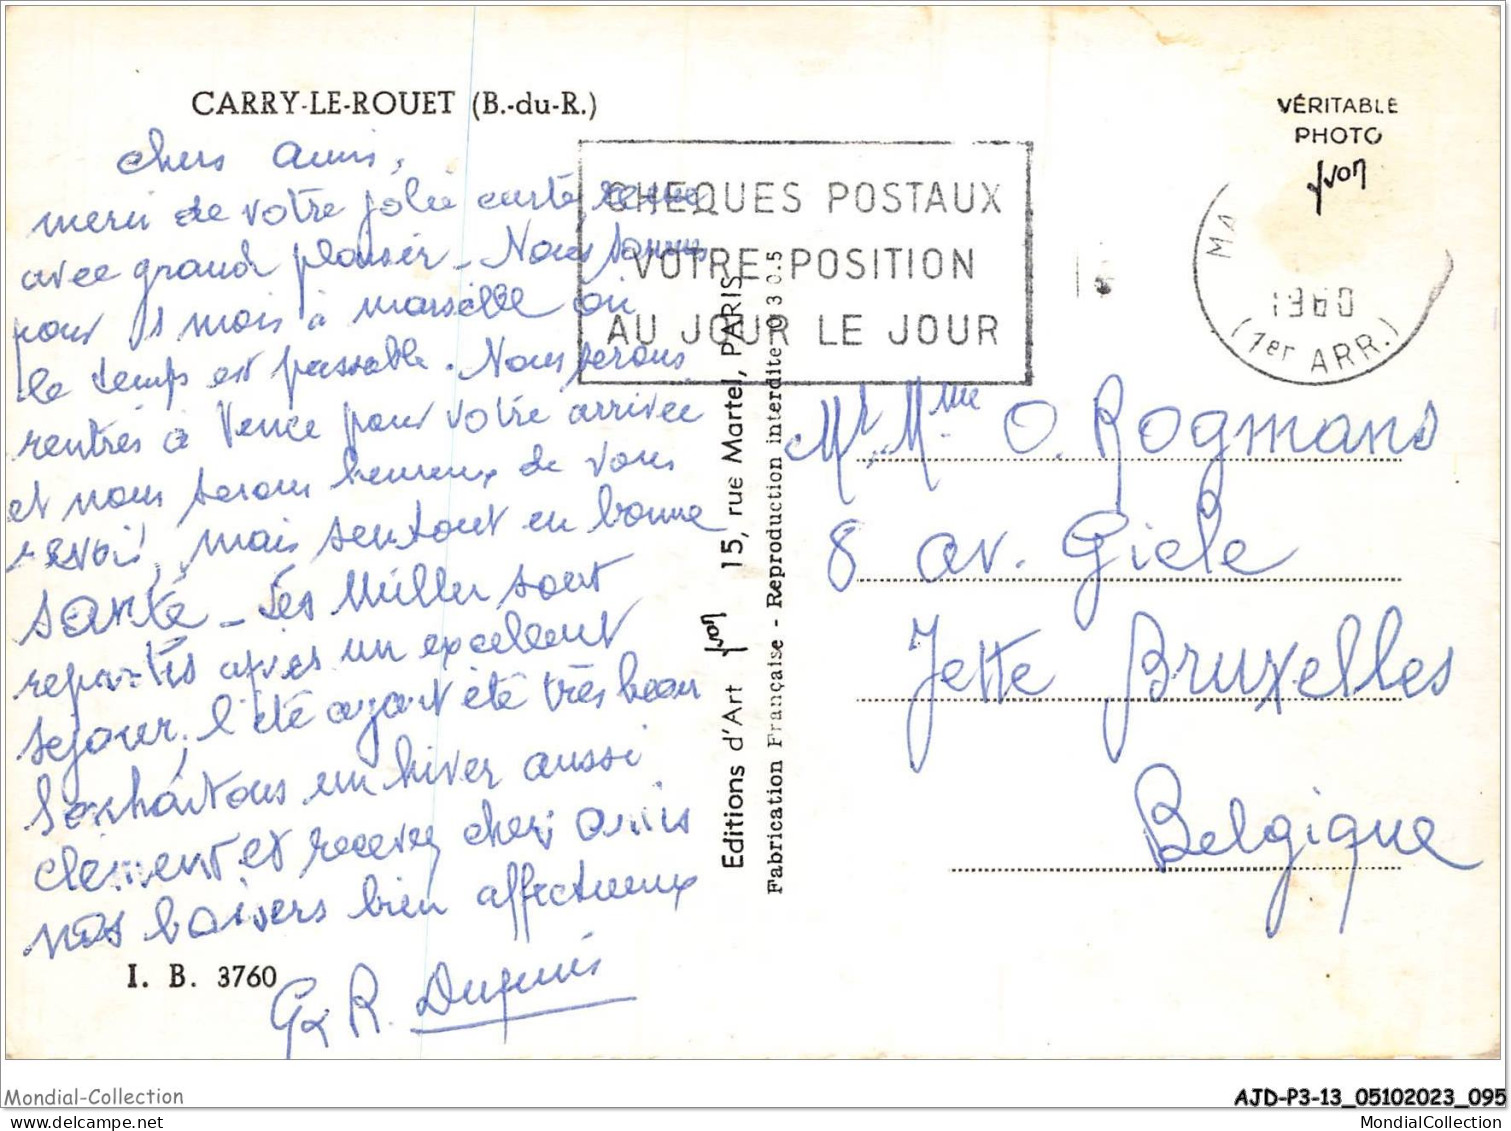 CARRY-LE-ROUET (B.-du-R.)
VÉRITABLE
PHOTO
yvon
chers amis,
merci de votre jolie carte reçue
avec grand plaisir - Nous sommes
pour 1 mois à marseille où
le temps est passable. Nous serons
rentrés à Vence pour votre arrivée
et nous serons heureux de vous
revoir, mais surtout en bonne
santé - Les Müller sont
repartis après un excellent
séjour, l'été ayant été très beau
souhaitons un hiver aussi
clément et recevez chers amis
nos baisers bien affectueux
G & R.
I. B. 3760
CHEQUES POSTAUX
VOTRE POSITION
AU JOUR LE JOUR
MA
1960
(1er ARR.)
Editions d'Art yvon 15, rue Martel, PARIS
Fabrication Française - Reproduction interdite
Mr Mme O. Rogmans
8 av. Giele
Jette Bruxelles
Belgique
Mondial-Collection
AJD-P3-13_05102023_095
www.delcampe.net
MondialCollection